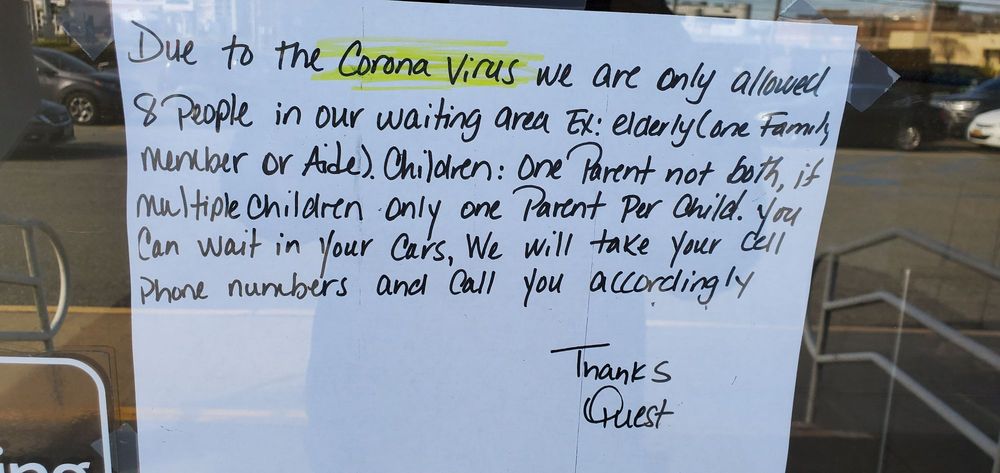 Due to the Corona Virus we are only allowed
8 People in our waiting area Ex: elderly (one Family
member or Aide). Children: One Parent not both, if
multiple children only one Parent Per Child. You
Can wait in your Cars, We will take your Cell
phone numbers and Call you accordingly
Thanks
Quest
ing